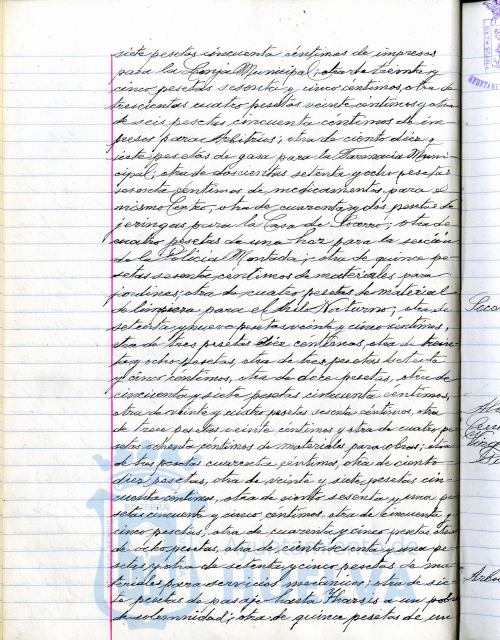 siete pesetas cincuenta céntimos de impresos
para la Conja Municipal; otra de treinta y
cinco pesetas sesenta y cinco centimos, otra de
trescientas cuatro pesetas veinte centimos y otra
de seis pesetas cincuenta centimos de im-
presos para Arbitrios; otra de ciento diez y
siete pesetas de gasa para la Farmacia Muni-
cipal; otra de doscientas setenta y ocho pesetas
sesenta centimos de medicamentos para el
mismo Centro; otra de cuarenta y dos pesetas de
jeringas para la Casa de Socorro; otra de
cuatro pesetas de una hoz para la sección
de la Policía Montada; otra de quince pe-
setas sesenta centimos de materiales para
jardines; otra de cuatro pesetas de material
de limpieza para el Asilo Nocturno; otra de
setenta y nueve pesetas veinte y cinco centimos,
otra de tres pesetas diez centimos, otra de trein-
ta y ocho pesetas, otra de tres pesetas setenta
y cinco centimos, otra de doce pesetas, otra de
cincuenta y siete pesetas cincuenta centimos,
otra de veinte y cuatro pesetas sesenta centimos, otra
de trece pesetas veinte centimos y otra de cuatro pe-
setas ochenta centimos de materiales para obras; otra
de tres pesetas cuarenta centimos, otra de ciento
diez pesetas, otra de veinte y siete pesetas cin-
cuenta centimos, otra de ciento sesenta y una pe-
setas cincuenta y cinco centimos, otra de cincuenta y
cinco pesetas, otra de cuarenta y cinco pesetas, otra
de ocho pesetas, otra de ciento sesenta y una pe-
setas y otra de setenta y cinco pesetas de ma-
teriales para servicios mecánicos; otra de sie-
te pesetas de pasaje hasta Tharsis a un pobre
de solemnidad; otra de quince pesetas de un
Ayuntamiento de
HUELVA